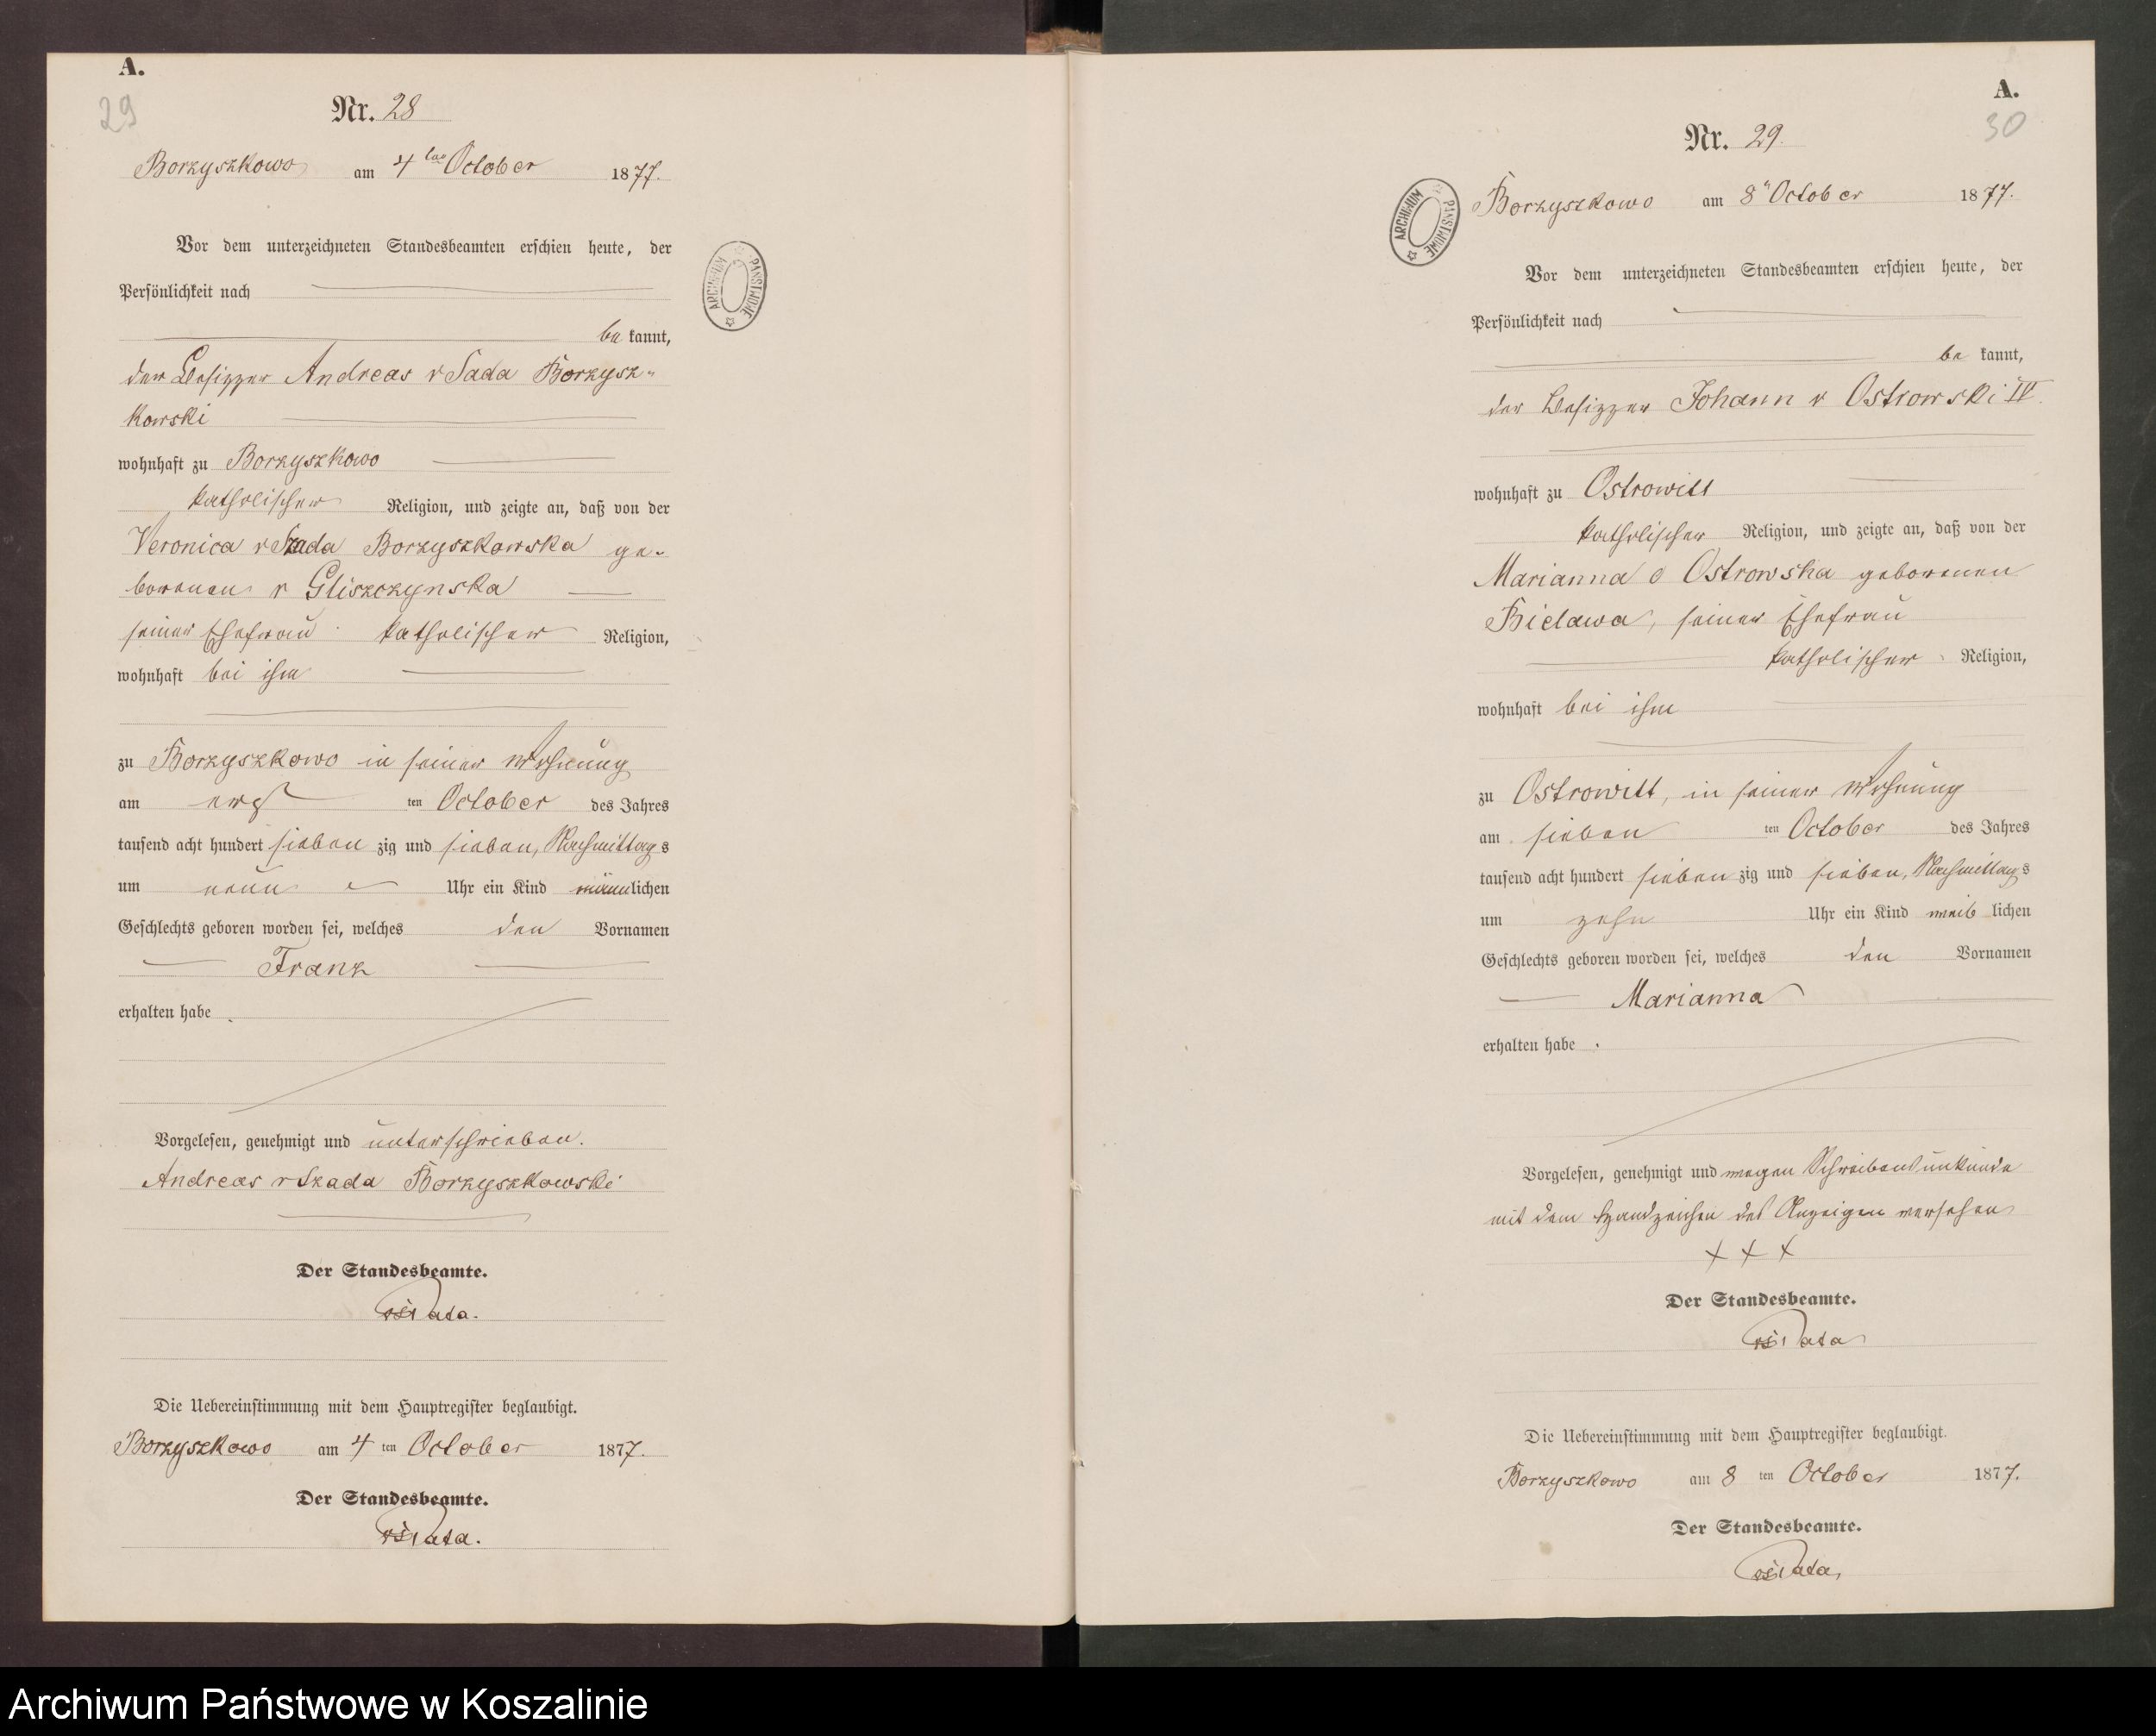 A.
29
Nr. 28
Borzyszkowo am 4ten October 1877.
Vor dem unterzeichneten Standesbeamten erschien heute, der
Persönlichkeit nach
be kannt,
der Besitzer Andreas v Sada Borzysz-
kowski
wohnhaft zu Borzyszkowo
katholischer Religion, und zeigte an, daß von der
Veronica v Szada Borzyszkowska ge-
borenen v Gliszczynska
seiner Ehefrau katholischer Religion,
wohnhaft bei ihm
zu Borzyszkowo in seiner Wohnung
am erst ten October des Jahres
tausend acht hundert sieben zig und sieben, Nachmittags
um neun Uhr ein Kind männlichen
Geschlechts geboren worden sei, welches den Vornamen
Franz
erhalten habe.
Vorgelesen, genehmigt und unterschrieben.
Andreas v Szada Borzyszkowski
Der Standesbeamte.
Die Uebereinstimmung mit dem Hauptregister beglaubigt.
Borzyszkowo am 4 ten October 1877.
Der Standesbeamte.
ARCHIWUM PAŃSTWOWE
A.
30
Nr. 29.
Borzyszkowo am 8" October 1877.
ARCHIWUM PAŃSTWOWE
Vor dem unterzeichneten Standesbeamten erschien heute, der
Persönlichkeit nach
be kannt,
der Besitzer Johann v Ostrowski IV.
wohnhaft zu Ostrowitt
katholischer Religion, und zeigte an, daß von der
Marianna v Ostrowska geborenen
Bielawa, seiner Ehefrau
katholischer Religion,
wohnhaft bei ihm
zu Ostrowitt, in seiner Wohnung
am sieben ten October des Jahres
tausend acht hundert sieben zig und sieben, Nachmittags
um zehn Uhr ein Kind weib lichen
Geschlechts geboren worden sei, welches den Vornamen
Marianna
erhalten habe.
Vorgelesen, genehmigt und wegen Schreibensunkunde
mit dem Handzeichen des Anzeigen versehen
+ + +
Der Standesbeamte.
Die Uebereinstimmung mit dem Hauptregister beglaubigt.
Borzyszkowo am 8 ten October 1877.
Der Standesbeamte.
Archiwum Państwowe w Koszalinie